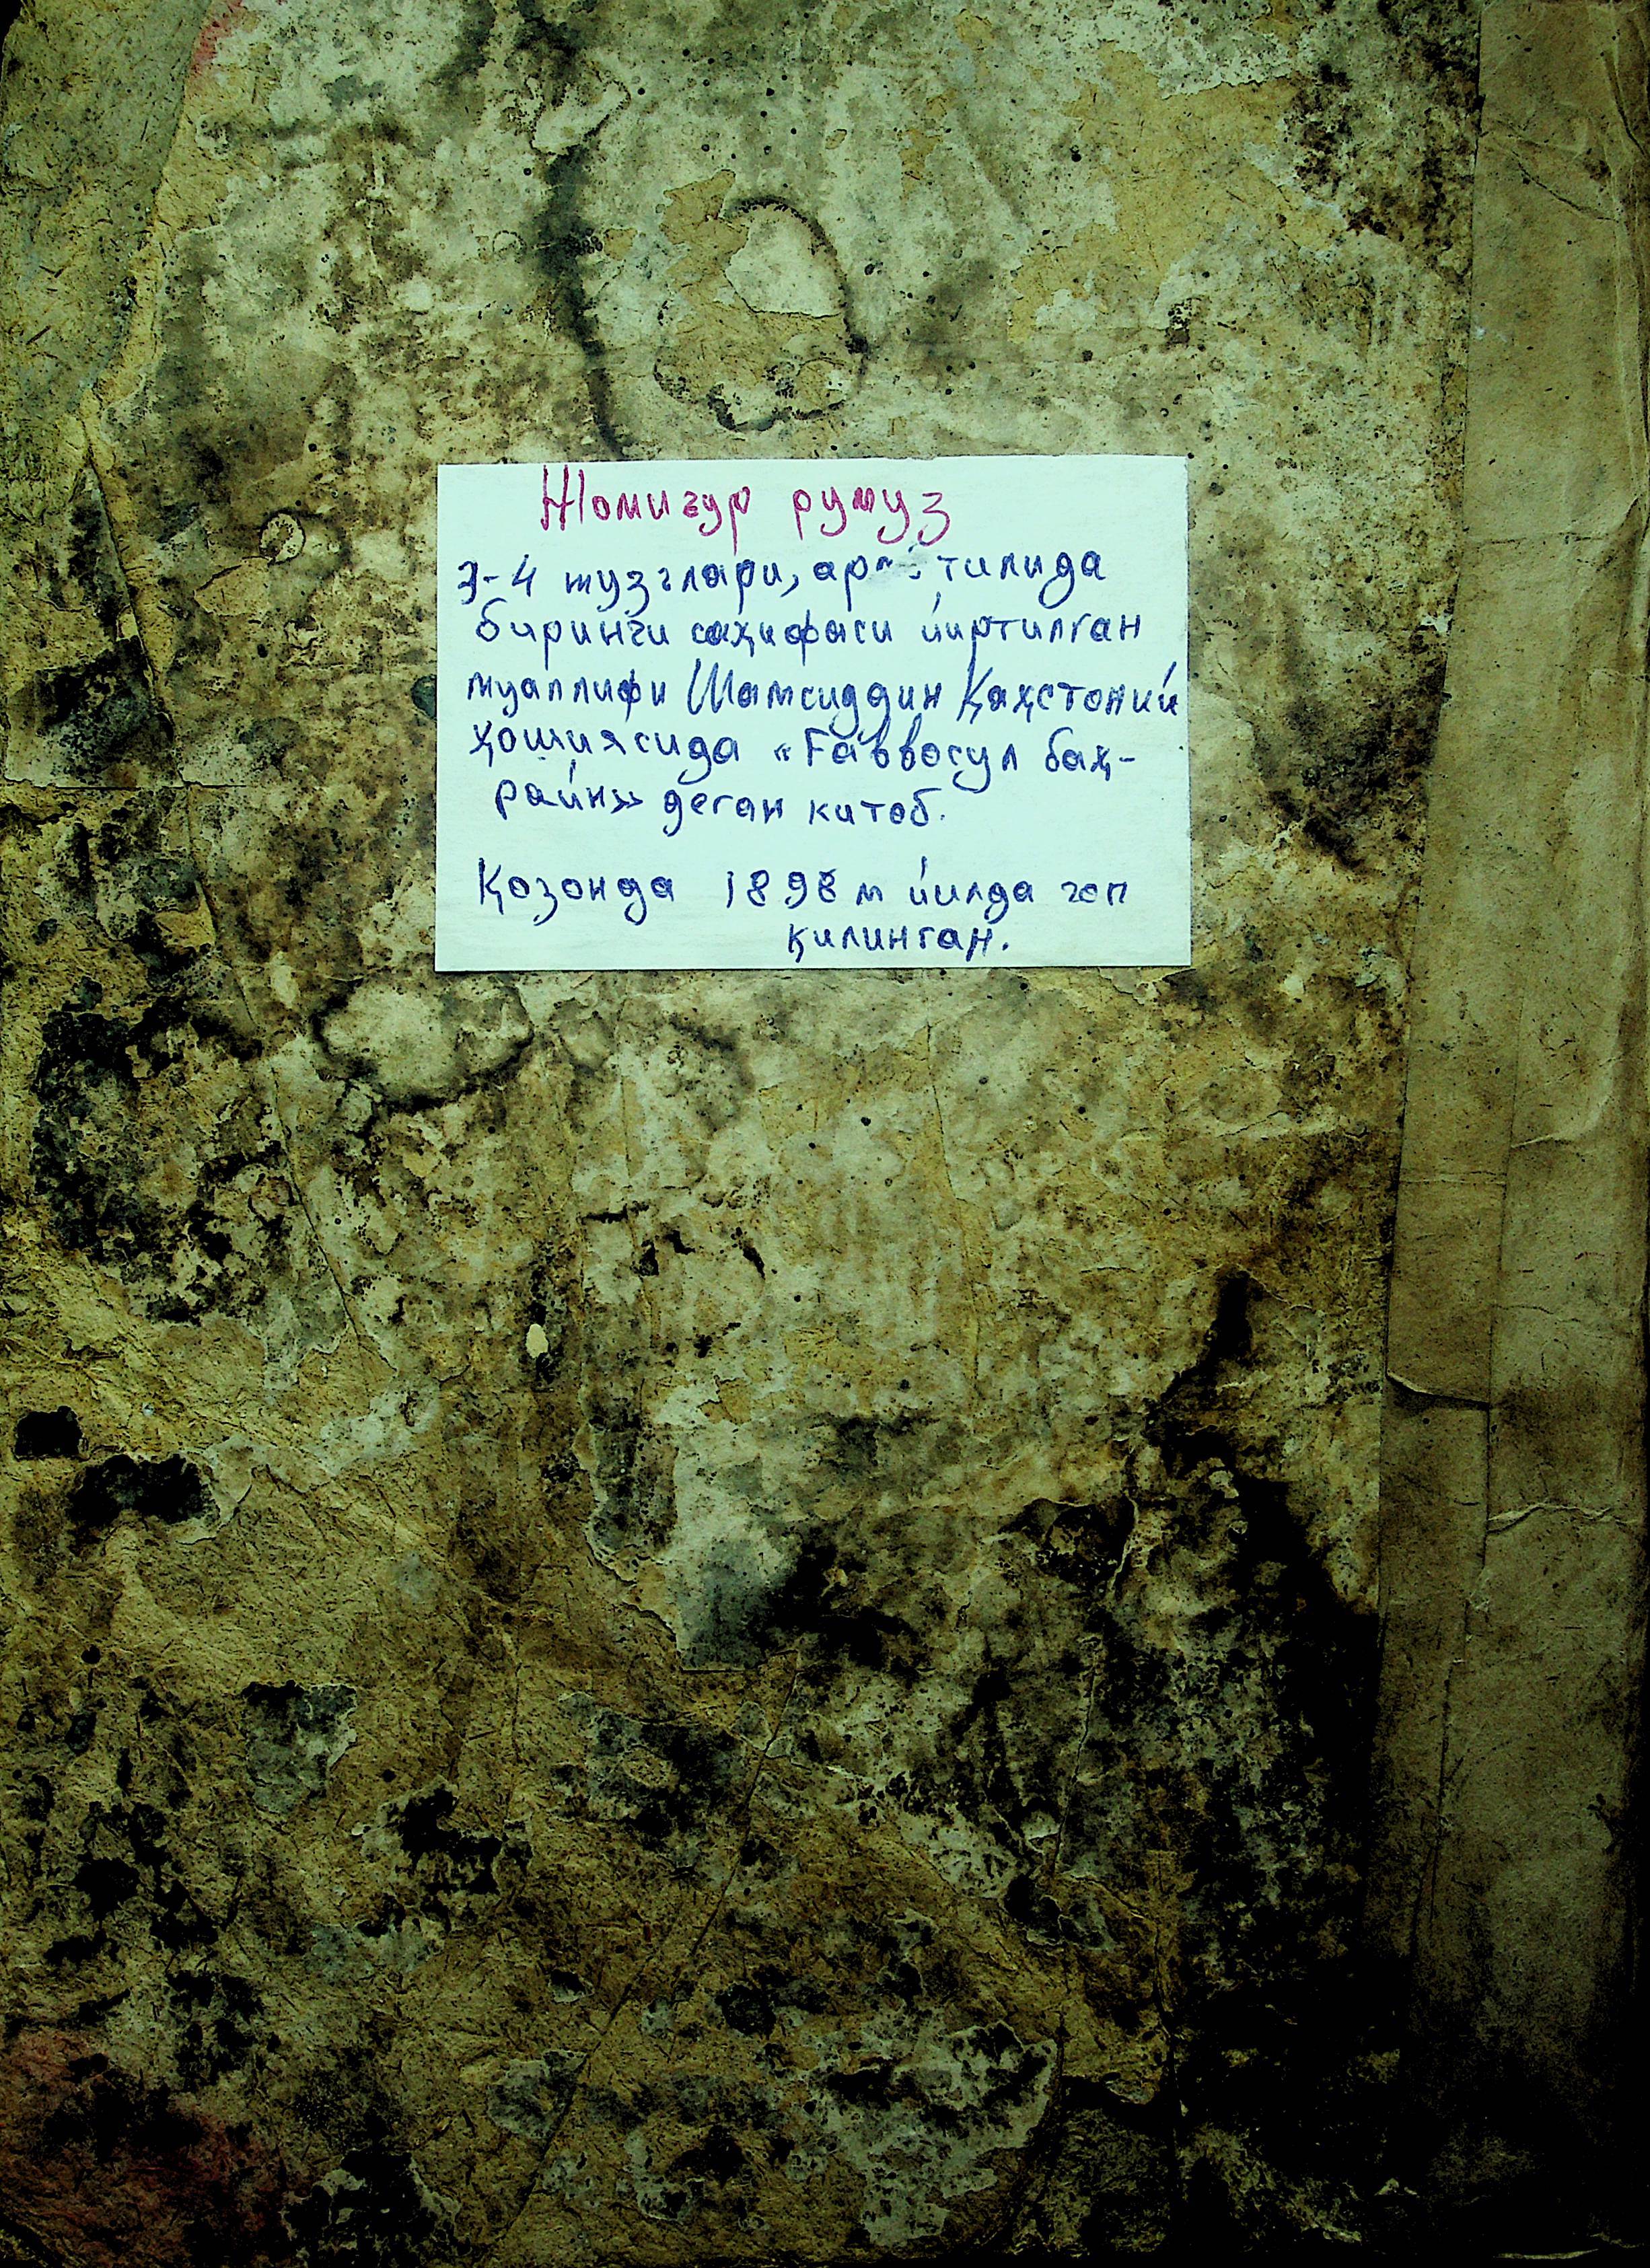 Жомигур румуз
3-4 жузглари, тилида
биринги саҳифаси йиртилган
муаллифи Шамсиддин Қаҳстоний
ҳошиясида «Ғаввосул баҳ-
райн» деган китоб.
Қозонда 1898 м йилда чоп
қилинган.